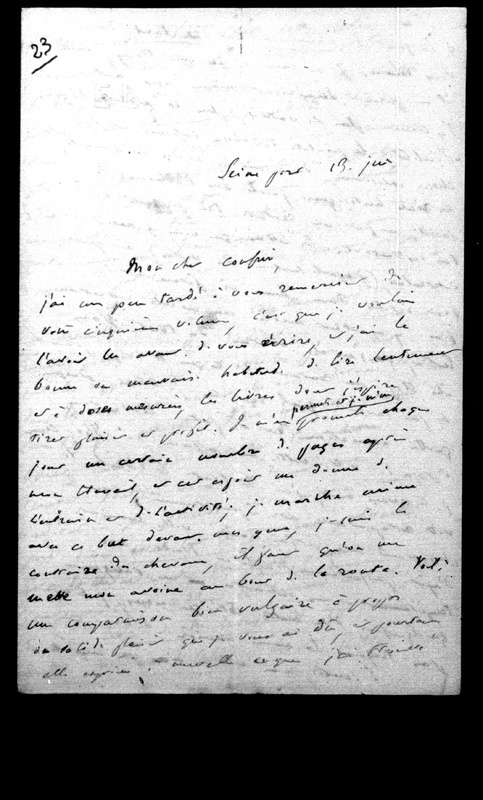 23
13 juin
Mon cher confrère,
j'ai un peu tardé à vous remercier de
votre cinquième volume, c'est que je voulais
l'avoir lu avant de vous écrire, et j'ai la
bonne ou mauvaise habitude de lire lentement
et à doses mesurées les livres dont j'espère
tirer plaisir et profit. Je m'en promets chaque
permets et je m'en
jour un certain nombre de pages après
mon travail, et cet espoir me donne de
l'entrain et de l'activité; je marche mieux
avec ce but devant mes yeux, je suis le
contraire des chevaux, il faut qu'on me
mette mon avoine au bout de la route. Voilà
une comparaison bien vulgaire à propos
du solide plaisir que je vous ai dû, et pourtant
elle exprime à merveille ce que j'ai